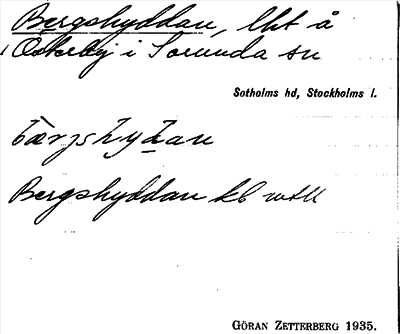 Bergshyddan, lht å
Österby i Sorunda sn
Sotholms hd, Stockholms l.
Bergshyddan kb
GÖRAN ZETTERBERG 1935.